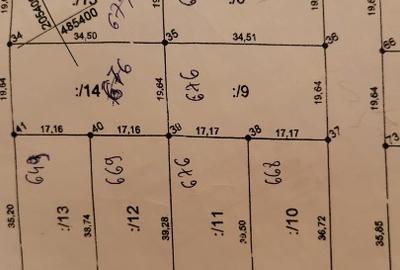 485400
34
34,50
35
34,51
36
66
19,64
:/14
676
19,64
676
:/9
19,64
19,64
41
17,16
40
17,16
39
17,17
38
17,17
37
73
649
669
676
668
35,20
:/13
38,74
:/12
39,28
:/11
39,50
:/10
36,72
35,85